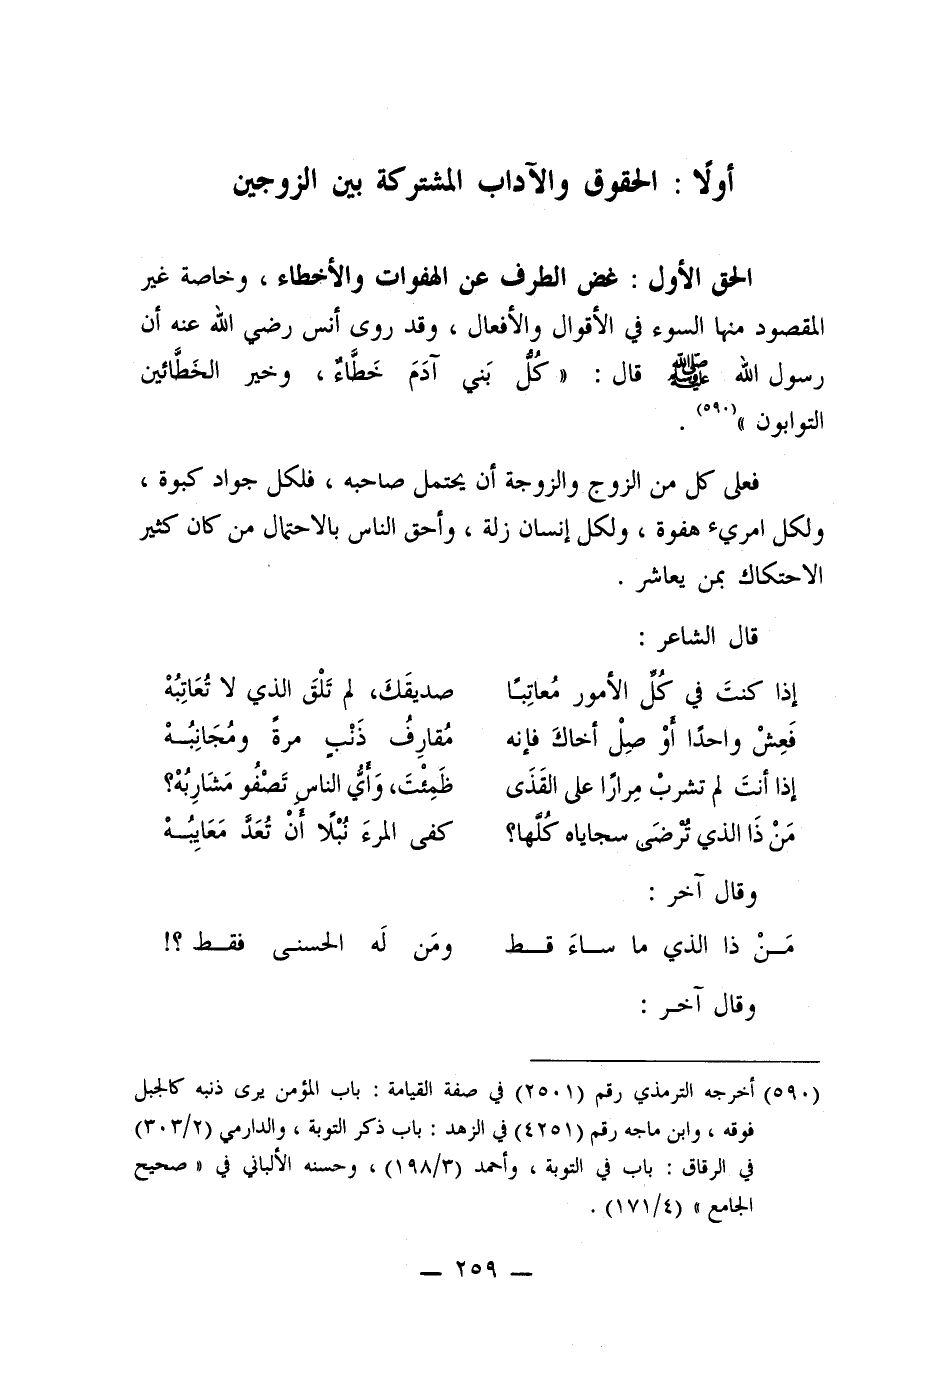 أولًا : الحقوق والآداب المشتركة بين الزوجين
الحق الأول : غض الطرف عن الهفوات والأخطاء ، وخاصة غير
المقصود منها السوء في الأقوال والأفعال ، وقد روى أنس رضي الله عنه أن
رسول الله ﷺ قال : « كُلُّ بَني آدَمَ خَطَّاءٌ ، وخير الخَطَّائين
التوابون »(٥٩٠) .
فعلى كل من الزوج والزوجة أن يحتمل صاحبه ، فلكل جواد كبوة ،
ولكل امريء هفوة ، ولكل إنسان زلة ، وأحق الناس بالاحتمال من كان كثير
الاحتكاك بمن يعاشر .
قال الشاعر :
إذا كنتَ في كُلِّ الأمور مُعاتِبًا صديقَكَ، لم تَلْقَ الذي لا تُعَاتِبُهْ
فَعِشْ واحدًا أَوْ صِلْ أخاكَ فإنه مُقارِفُ ذَنْبٍ مرةً ومُجَانِبُـهْ
إذا أنتَ لم تشربْ مِرارًا على القَذَى ظَمِئْتَ، وَأَيُّ الناسِ تَصْفُو مَشَاربُهْ؟
مَنْ ذَا الذي تُرْضَى سجاياه كُلُّها؟ كفى المرءَ نُبْلًا أَنْ تُعَدَّ مَعَايِبُـهْ
وقال آخر :
مَـنْ ذا الذي ما ســاءَ قــط ومَن لَه الحسنـى فقــط ؟!
وقال آخـر :
(٥٩٠) أخرجه الترمذي رقم (٢٥٠١) في صفة القيامة : باب المؤمن يرى ذنبه كالجبل
فوقه ، وابن ماجه رقم (٤٢٥١) في الزهد : باب ذكر التوبة ، والدارمي (٣٠٣/٢)
في الرقاق : باب في التوبة ، وأحمد (١٩٨/٣) ، وحسنه الألباني في « صحيح
الجامع » (١٧١/٤) .
ــ ٢٥٩ ــ